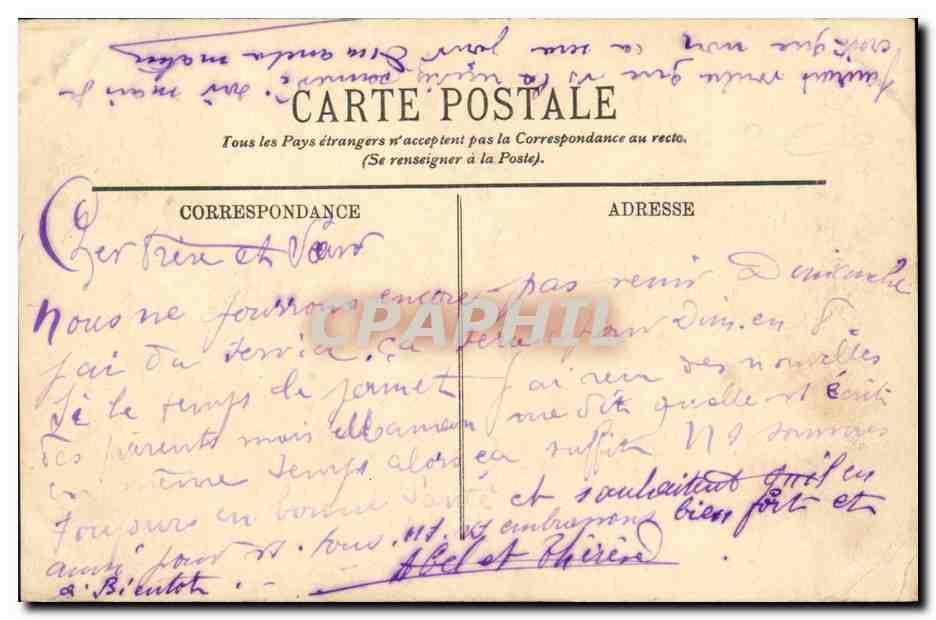 CARTE POSTALE
Tous les Pays étrangers n'acceptent pas la Correspondance au recto.
(Se renseigner à la Poste).
CORRESPONDANCE
ADRESSE
Cher Frère et Sœur
Nous ne pourrons encore pas venir Dimanche
j'ai du service. ça sera pour Dim. en 8
si le temps le permet J'ai reçu des nouvelles
des parents mais Maman me dit quelle vs écrit
en même temps alors ça suffit Ns sommes
toujours en bonne Santé et souhaitent quil en
aussi pour vs. tous. ns. vs embrassons bien fort et
a. Bientot. Abel et Thérèse
voulu que vs la
que non ca sera pour Dim
CPAPHIL